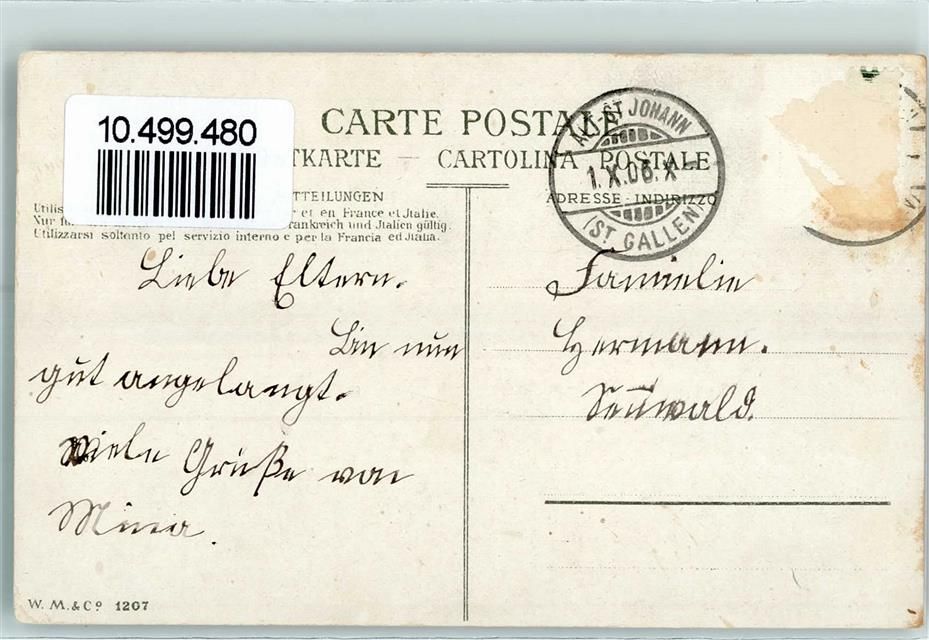 10.499.480
CARTE POSTALE
TKARTE — CARTOLINA POSTALE
TTEILUNGEN
ADRESSE - INDIRIZZO
Utilis er et en France et Italie.
Nur für rankreich und Italien gültig.
Utilizzarsi soltanto pel servizio interno e per la Francia ed Italia.
ALT-ST JOHANN
1.X.06.X
(ST GALLEN)
Liebe Eltern.
Bin nun
gut angelangt.
Viele Grüße von
Mina.
Famielie
Hermann.
W. M. & Cº 1207